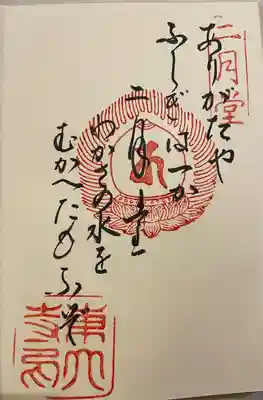 二月堂
ありがたや
ふしぎは一か
二月堂
わかさの水を
むかへたもふ
東大